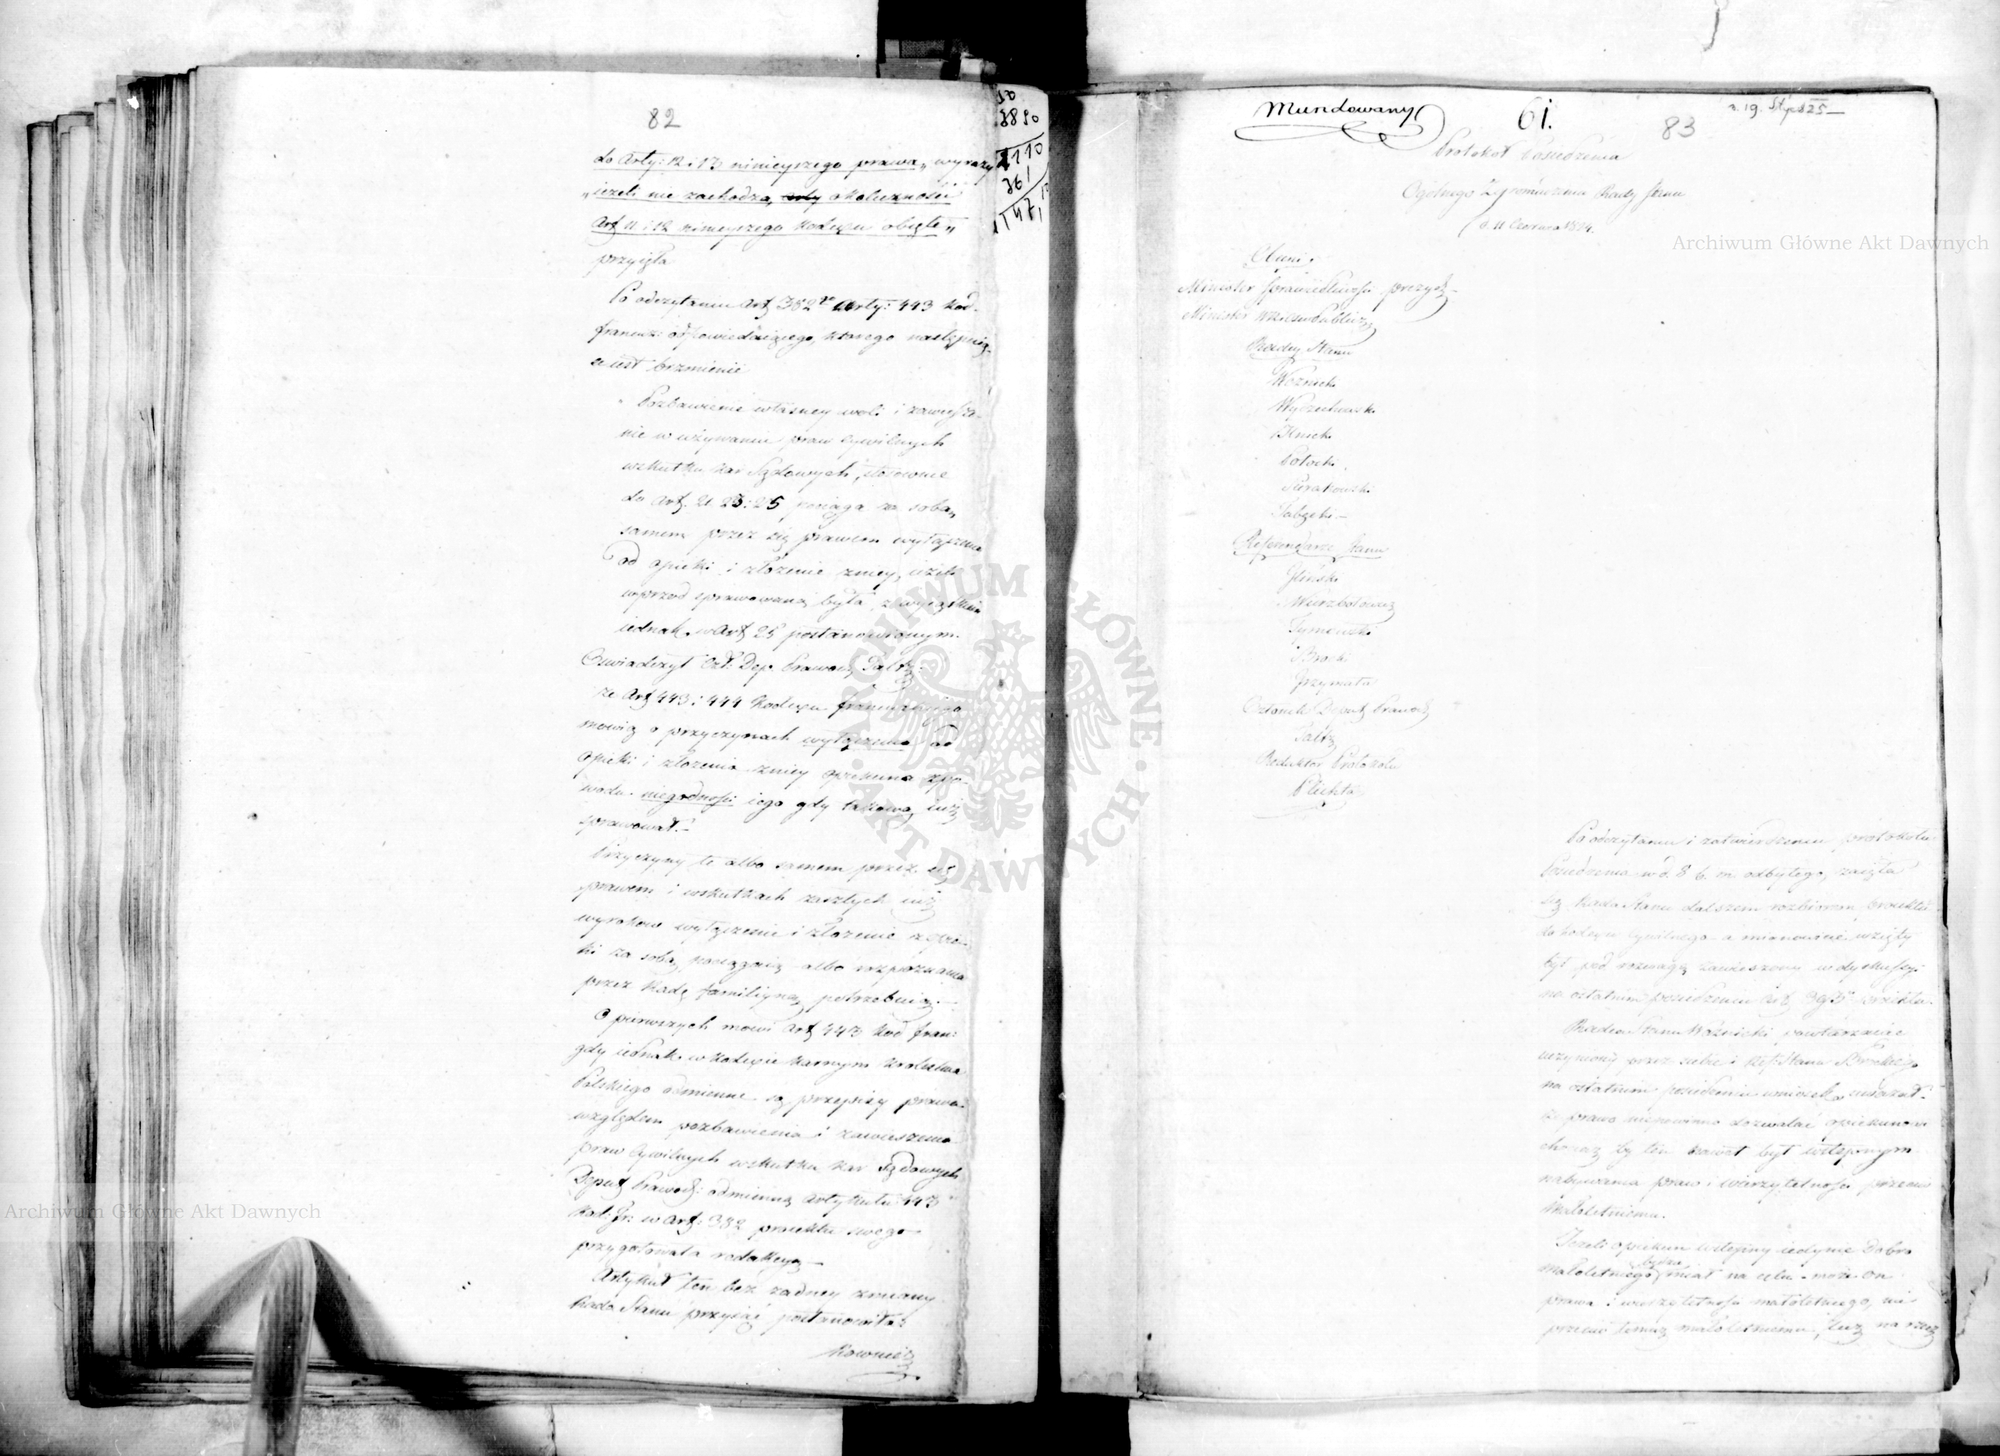 82
do Arty: 12 i 13 ninieyszego prawa „ wyrazy
„ ieżeli nie zachodzą okoliczności
Art 11 i 12 ninieyszego Kodexu obięte „
przyięła
Po odczytaniu Art 382go Arty: 443 Kod.
francuz: odpowiedaiącego, którego następuią-
ce iest brzmienie
Pozbawienie własney woli i zawiesze-
nie w używaniu praw Cywilnych
wskutku kar Sądowych, stosownie
do Art. 21 23 i 25 pociąga za sobą
samem przez się prawem wyłączenie
od opieki i złożenie z niey, ieżeli
wprzód sprawowaną była, z wyiątkiem
iednak w Art 25 postanowionym.
Oświadczył Czł: Dep. Prawod.
że Art 443 i 444 Kodexu francuzkiego
mówią o przyczynach wyłączenia od
opieki i złożenia z niey opiekuna z po-
wodu niegodności iego gdy takową iuż
sprawował.
Przyczyny te albo samem przez się
prawem i wskutkach zaszłych iuż
wyroków wyłączenie i złożenie z opie-
ki za sobą pociągaią albo rozpoznania
przez Radę familiyną potrzebuią.
O pierwszych mówi Art 443 Kod fran:
gdy iednak w Kodexie karnym Królestwa
Polskiego odmienne są przepisy prawa
względem pozbawienia i zawieszenia
praw Cywilnych wskutku kar Sądowych
Deput Prawod: odmienną Artykułu 443
Kod: fr: w Art: 382 proiektu swego
przygotowała redakcyą
Artykuł ten bez żadney zmiany
Rada Stanu przyiąć postanowiła.
Równie
3890
1110
361
Mundowany
61.
83
19. 25
Protokół Posiedzenia
Ogólnego Zgromadzenia Rady Stanu
d. 11 Czerwca 1824.
Obecni.
Minister Sprawiedliwości prezyd.
Minister
Radcy Stanu
Woźnicki
Wyczechowski
Potocki
Referendarze Stanu
Wierzbołowicz
Tymowski
Brocki
Członek Deput Prawod
Redaktor Protokołu
Plichta
Po odczytaniu i zatwierdzeniu protokołu
Posiedzenia w d. 8 b. m odbytego, zaięła
się Rada Stanu dalszem rozbiorem proiektu
do kodexu cywilnego a mianowicie wzięty
był pod rozwagę zawieszony w dyskussyi
na ostatnim posiedzeniu Art 393 proiektu.
Radca Stanu Woźnicki powtarzaiąc
uczyniony przez siebie i Ref: Stanu Brockiego
na ostatnim posiedzeniu wniosek
że prawo niepowinno dozwalać opiekunowi
chociażby ten nawet był wstępnym
nabywania praw i wierzytelności przeciw
Małoletniemu.
Jeżeli opiekun wstępny iedynie dobro
małoletniego będzie miał na celu - może on
prawa i wierzytelności małoletniego,
przeciw temuż małoletniemu, lub na rzecz
Archiwum Główne Akt Dawnych
Archiwum Główne Akt Dawnych
ARCHIWUM GŁÓWNE
AKT DAWNYCH